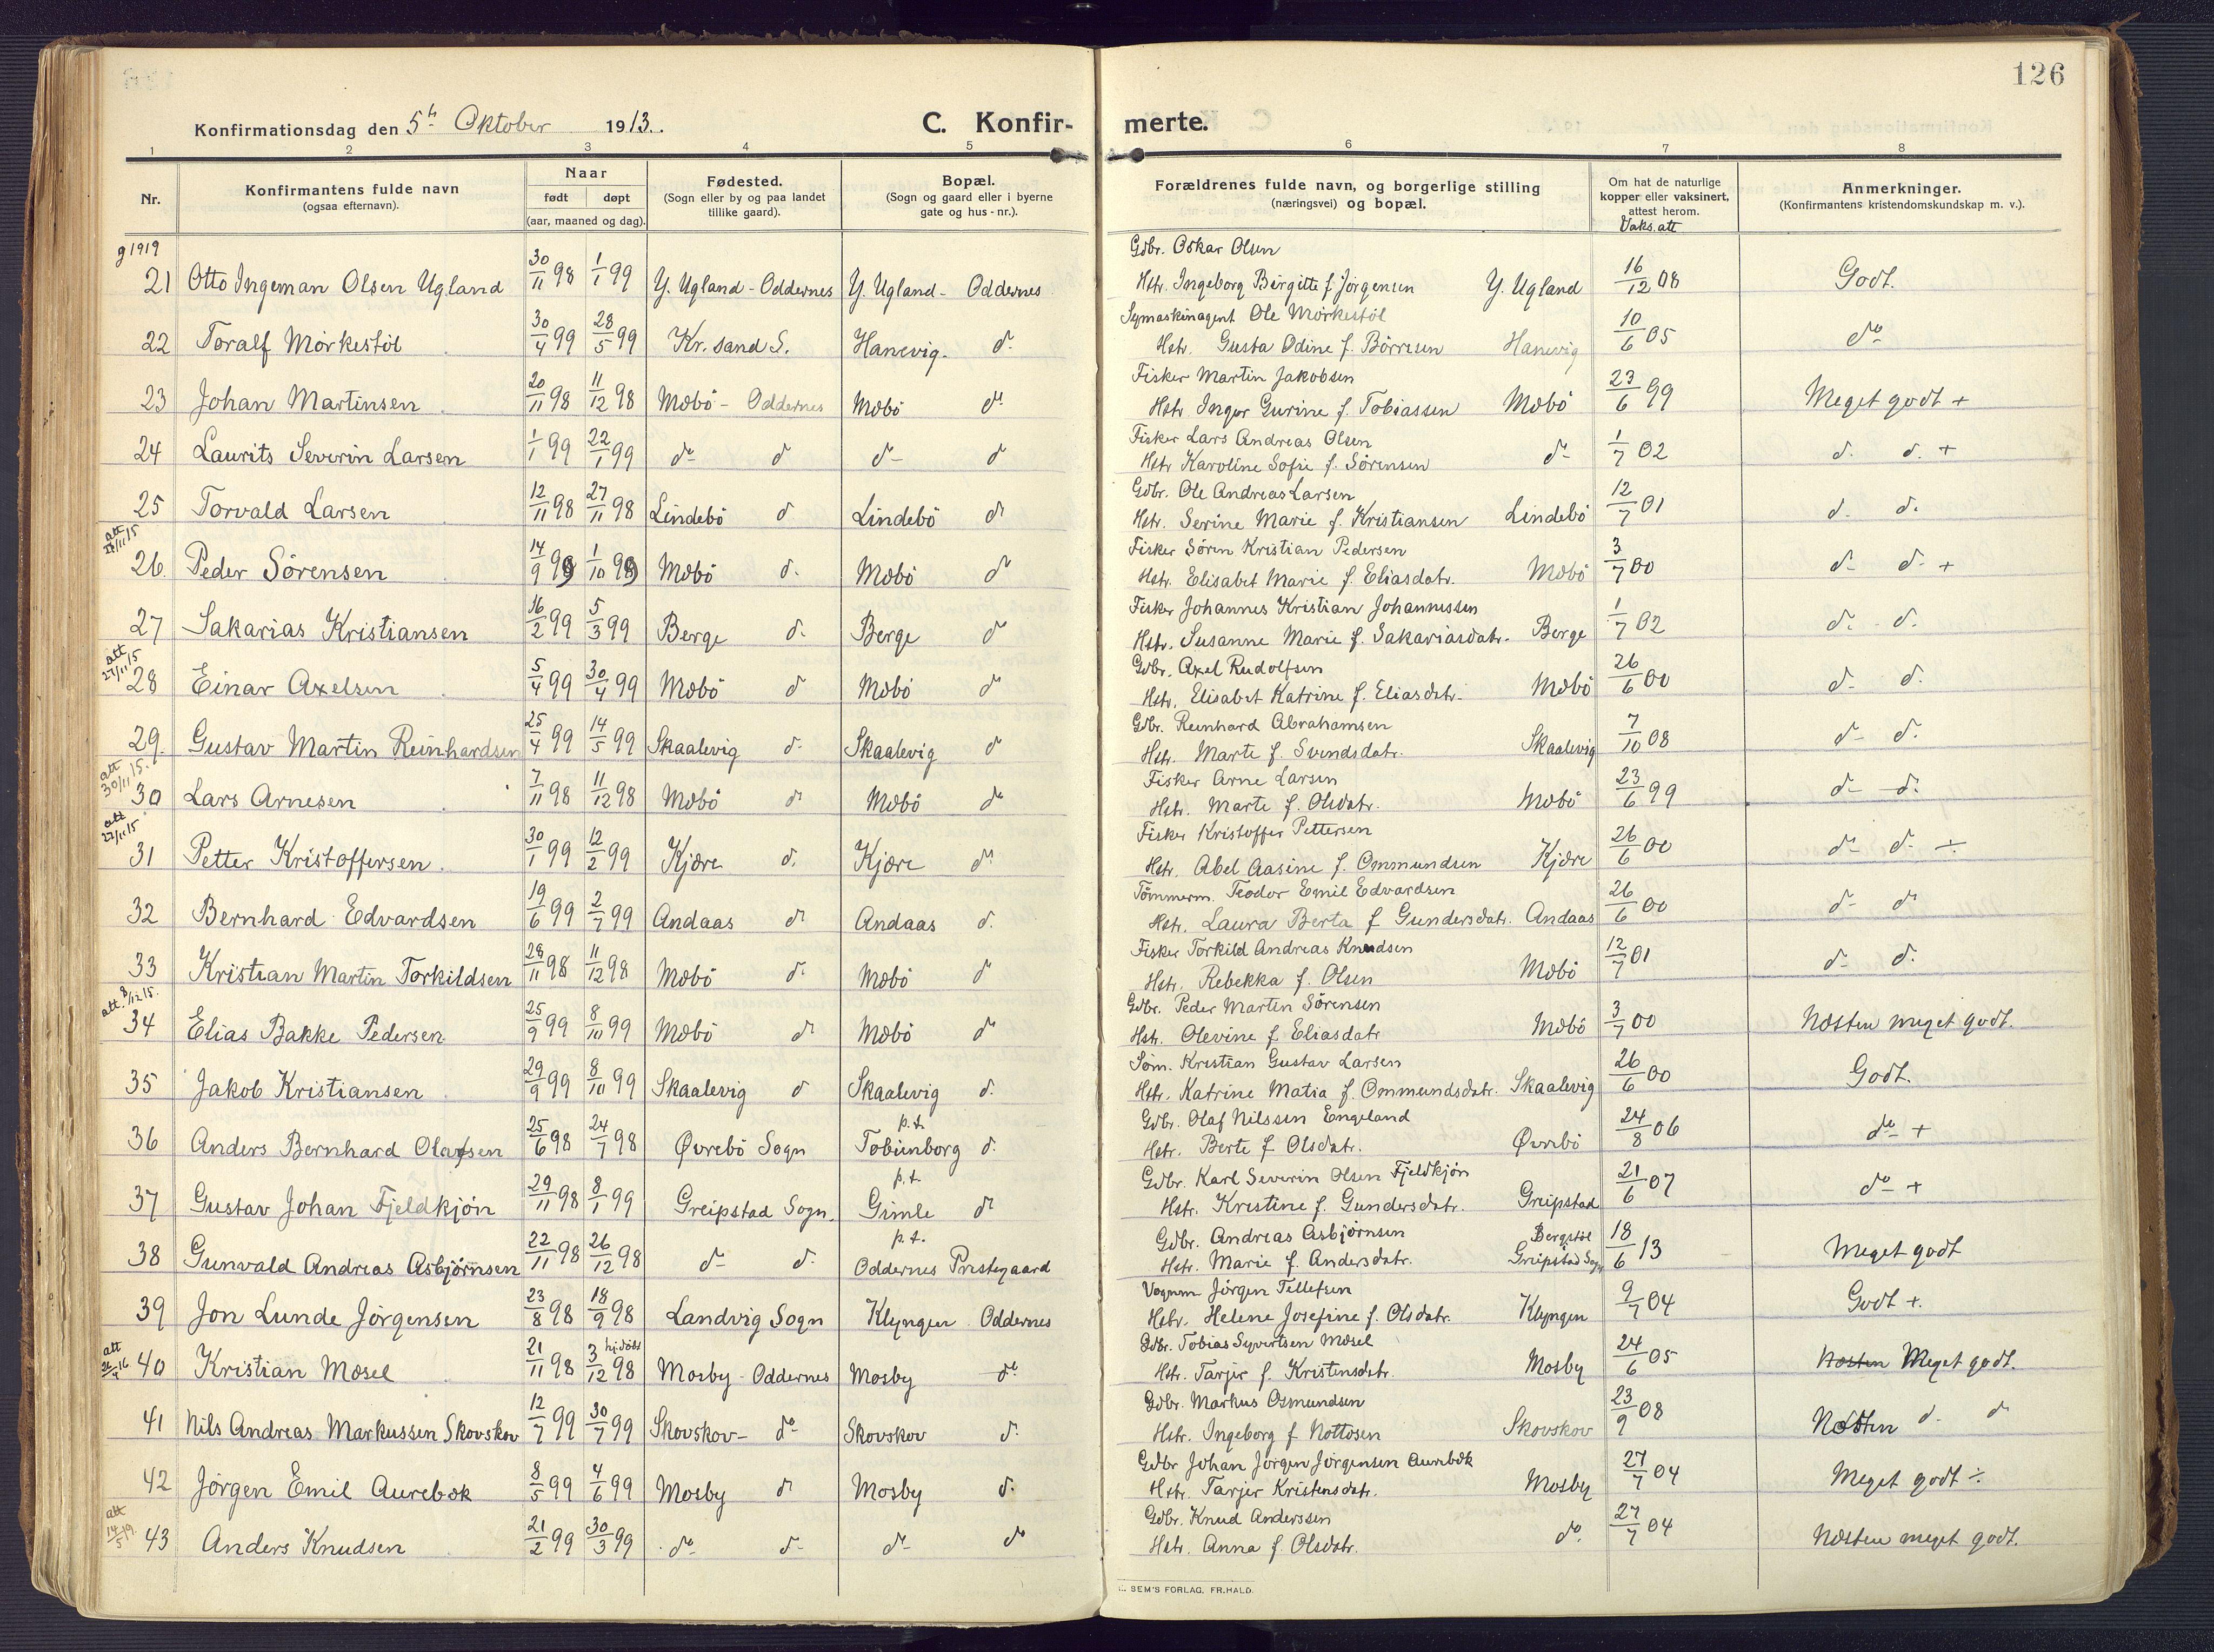 126
Konfirmationsdag den 5te Oktober 1913. C. Konfirmerte.
1 2 3 4 5 6 7 8
Nr. Konfirmantens fulde navn (ogsaa efternavn). Naar født døpt (aar, maaned og dag). Fødested. (Sogn eller by og paa landet tillike gaard). Bopæl. (Sogn og gaard eller i byerne gate og hus-nr.). Forældrenes fulde navn, og borgerlige stilling (næringsvei) og bopæl. Om hat de naturlige kopper eller vaksinert, attest herom. Vaks. att Anmerkninger. (Konfirmantens kristendomskundskap m. v.).
g 1919
Gdbr. Oskar Olsen
21 Otto Ingeman Olsen Ugland 30/11 98 1/1 99 Y. Ugland - Oddernes Y. Ugland - Oddernes Hstr. Ingeborg Birgitte f. Jørgensen Y. Ugland 16/12 08 Godt.
Symaskinagent Ole Mörkestöl
22 Toralf Mörkestöl 30/4 99 28/5 99 Kr.sand S. Hanevig. do Hstr. Gusta Odine f. Börresen Hanevig 10/6 05 do
Fisker Martin Jakobsen
23 Johan Martinsen 20/11 98 11/12 98 Mæbö - Oddernes Mæbö do Hstr. Inger Gurine f. Tobiassen Mæbö 23/6 99 Meget godt +
Fisker Lars Andreas Olsen
24 Laurits Severin Larsen 1/1 99 22/1 99 do do do do Hstr Karoline Sofie f. Sörensen do 1/7 02 do do +
Gdbr. Ole Andreas Larsen
25 Torvald Larsen 12/11 98 27/11 98 Lindebö do Lindebö do Hstr. Serine Marie f. Kristiansen Lindebö 12/7 01 do do
att 27/11 15
Fisker Sörin Kristian Pedersen
26. Peder Sörensen 14/9 99 1/10 99 Mæbö do Mæbö do Hstr. Elisabet Marie f. Eliasdatr. Mæbö 3/7 00 do do +
Fisker Johannes Kristian Johannessen
27 Sakarias Kristiansen 16/2 99 5/3 99 Berge do Berge do Hstr. Susanne Marie f. Sakariasdatr. Berge 1/7 02 do do
att 27/11 15
Gdbr. Axel Rudolfsen
28 Einar Axelsen 5/4 99 30/4 99 Mæbö do Mæbö do Hstr. Elisabet Katrine f. Eliasdatr. Mæbö 26/6 00 do do
Gdbr. Reinhard Abrahamsen
29. Gustav Martin Reinhardsen 25/4 99 14/5 99 Skaalevig do Skaalevig do Hstr. Marte f. Svendsdatr. Skaalevig 7/10 08 do do
att 30/11 15.
Fisker Arne Larsen
30 Lars Arnesen 7/11 98 11/12 98 Mæbö do Mæbö do Hstr. Marte f. Olsdatr. Mæbö 23/6 99 do do
att 27/11 15
Fisker Kristoffer Pettersen
31 Petter Kristoffersen. 30/1 99 12/2 99 Kjære do Kjære do Hstr. Abel Aasine f. Ommundsen Kjære 26/6 00 do do ÷
Tömmerm. Teodor Emil Edvardsen
32 Bernhard Edvardsen 19/6 99 2/7 99 Andaas do Andaas do Hstr. Laura Berta f Gundersdatr. Andaas 26/6 00 do do
Fisker Torkild Andreas Knudsen
33 Kristian Martin Torkildsen 28/11 98 11/12 98 Mæbö do Mæbö do Hstr. Rebekka f. Olsen Mæbö 12/7 01 do do
att. 8/12 15.
Gdbr. Peder Martin Sörensen
34 Elias Bakke Pedersen 25/9 99 8/10 99 Mæbö do Mæbö do Hstr. Olevine f Eliasdatr Mæbö 3/7 00 Næsten meget godt.
Söm. Kristian Gustav Larsen
35 Jakob Kristiansen 29/9 99 8/10 99 Skaalevig do Skaalevig do Hstr. Katrine Matia f. Ommundsdatr. Skaalevig 26/6 00 Godt.
p.t. Gdbr. Olaf Nilssen Engeland
36 Anders Bernhard Olafsen 25/6 98 24/7 98 Øvrebö Sogn Tobienborg do Hstr. Berte f Olsdatr. Øvrebö 24/8 06 do +
p.t. Gdbr. Karl Severin Olsen Fjeldkjön
37 Gustav Johan Fjeldkjön 29/11 98 8/1 99 Greipstad Sogn. Gimle do Hstr. Kristine f. Gundersdatr. Greipstad 21/6 07 do +
p.t. Gdbr. Andreas Asbjörnsen Bergstöl
38 Gunvald Andreas Asbjörnsen 22/11 98 26/12 98 do do Oddernes Prestegaard Hstr. Marie f. Andersdatr. Greipstad Sogn 18/6 13 Meget godt
Vognm Jörgen Tellefsen
39 Jon Lunde Jörgensen 23/8 98 18/9 98 Landvig Sogn Klyngen Oddernes Hstr. Helene Josefine f. Olsdatr. Klyngen 9/7 04 Godt +.
att 26/4 16 hj.döbt
Gdbr. Tobias Syvertsen Mosel
40 Kristian Mosel 21/11 98 3/12 98 Mosby - Oddernes Mosby do Hstr. Tarjer f. Kristensdatr. Mosby 24/6 05 Næsten Meget godt.
Gdbr. Markus Osmundsen
41 Nils Andreas Markussen Skovskov 12/7 99 30/7 99 Skovskov - do Skovskov do Hstr. Ingeborg f Nottosen Skovskov 23/9 08 Næsten do do
Gdbr Johan Jörgen Jörgensen Aurebæk
42 Jörgen Emil Aurebæk 8/5 99 4/6 99 Mosby do Mosby do Hstr. Tarjer Kristensdatr. Mosby 27/7 04 Meget godt ÷
att 14/5 19.
Gdbr. Knud Anderssen
43 Anders Knudsen 21/2 99 30/3 99 do do do do Hstr. Anna f. Olsdatr. do 27/7 04 Næsten meget godt.
SEM'S FORLAG, FR.HALD.